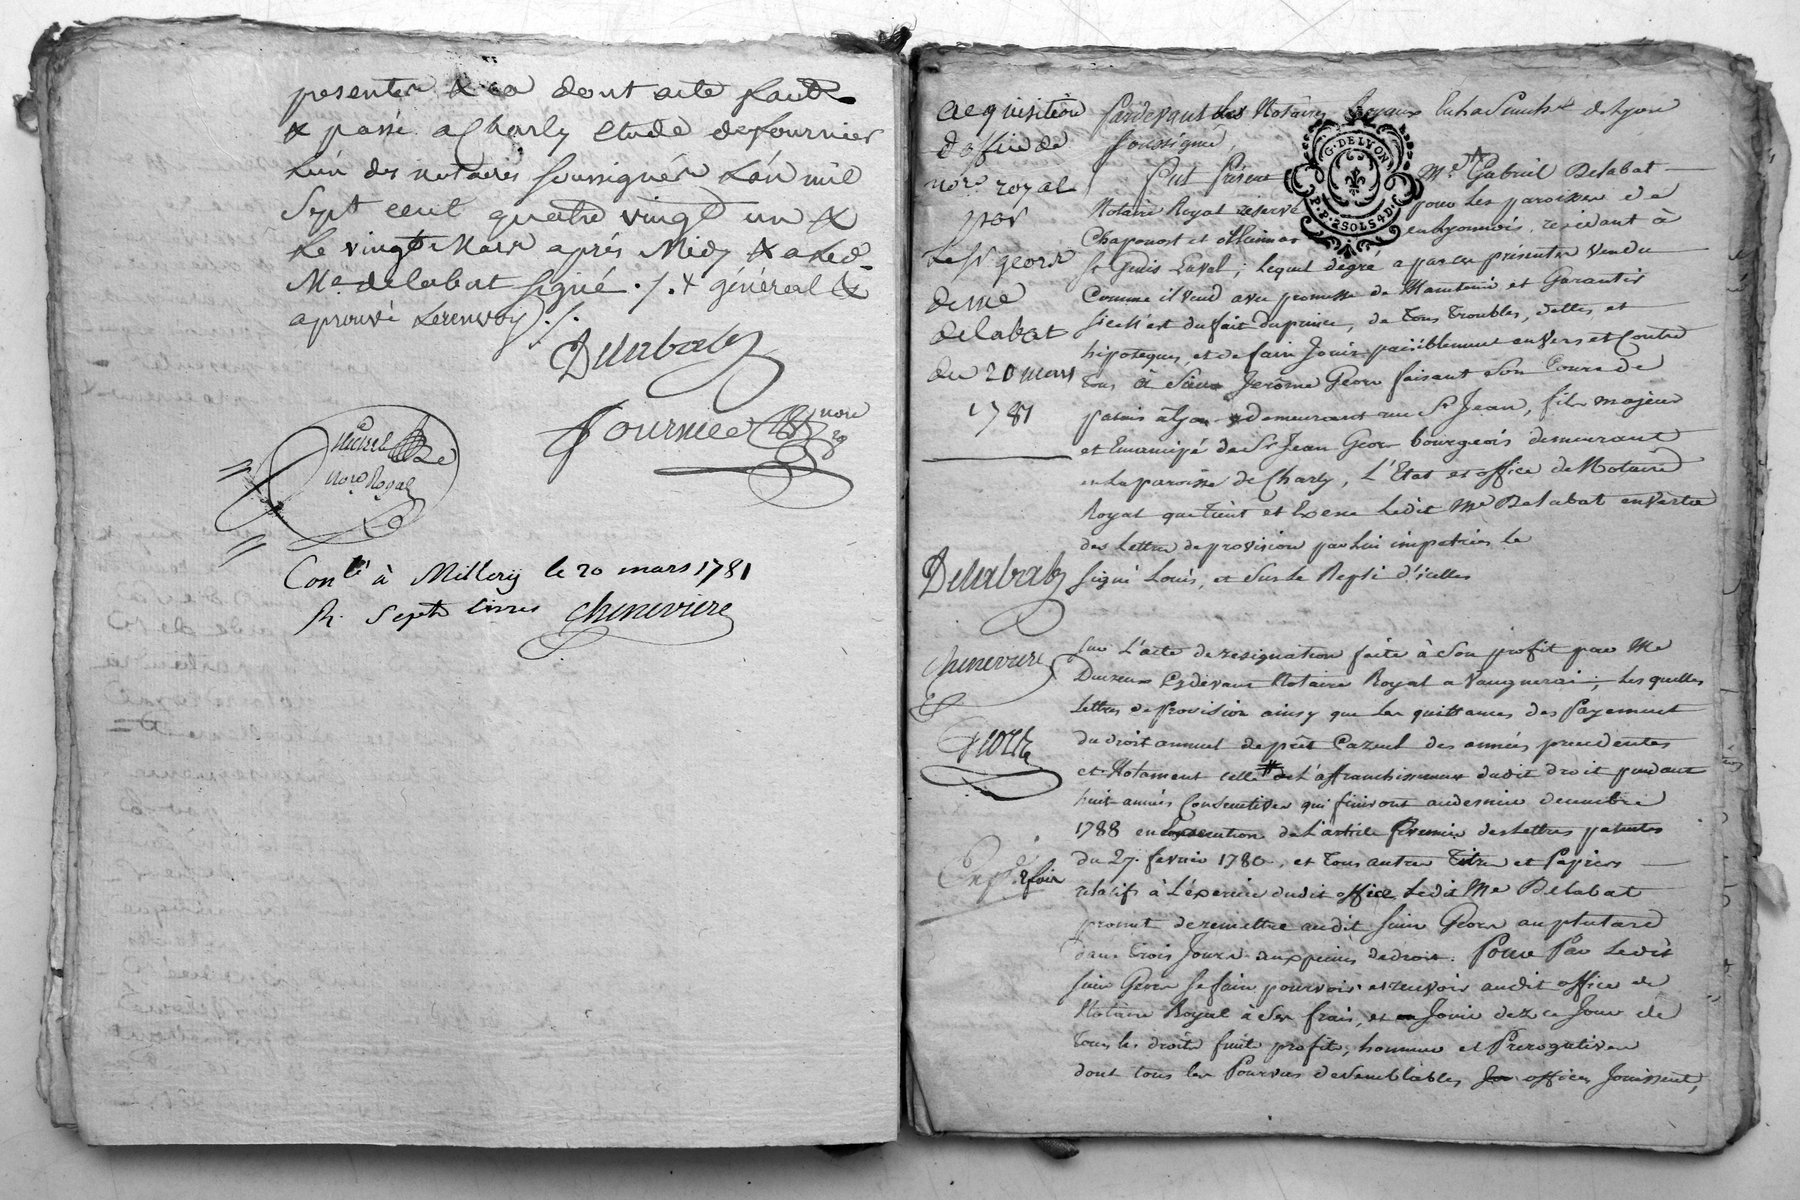 presenter & ca dont acte fait
& passé a Charly Etude de fournier
L'un des notaires soussignés L'an mil
Sept cent quatre vingt un &
Le vingt Mars après Midy & a Led.
Me. delabat signé ./. & général &
aprouvé Lerenvoy ./.
Delabat
fournier nore
Nore Royal
Conlé à Millery le 20 mars 1781
R. Sept Livres Chenevriere
acquisition
d'office de
nore. royal
par
Le Sr georr
de me
delabat
du 20 mars
1781
Delabat
Chenevriere
Georr
Expd.
Pardevant Les Notaires Royaux En la Senechée de Lyon
soussignés
G. DE LYON
P.P. 2 SOLS 4 D.
Fut Présent Me. Gabriel Delabat
Notaire Royal reservé pour Les paroisses de
Chaponost et en Lyonnois, residant à
St Genis Laval; Lequel de gré a par ces présentes vendu
Comme il vend avec promesse de Maintenir et Garantir
si ce n'est du fait du prince, de Tous Troubles, dettes, et
hipoteques, et de faire Jouir paisiblement envers et Contre
Tous à Sieur Jerôme Georr faisant Son Cours de
palais à Lyon y demeurant rue St Jean, fils majeur
et Emancipé de Sr Jean Georr bourgeois demeurant
en La paroisse de Charly, L'Etat et office de Notaire
Royal que Tient et Exerce Ledit Me Delabat en vertu
des Lettres de provision par Lui impetrées le
Signé Louis, et Sur Le Repli d'icelles
Sur L'acte de resignation faite à Son profit par Me
Cydevant Notaire Royal a Vaugnerai, Lesquelles
Lettres de Provision ainsy que Les quittances des Payement
du droit annuel de prêt Cazuel des années precedentes
et Notament celle de L'affranchissement dudit droit pendant
huit années Consecutives qui finiront audernier decembre
1788 en Execution de L'article Premier des Lettres patentes
du 27. fevrier 1780, et Tous autres Titres et Papiers
relatifs à L'exercice dudit office Ledit Me Delabat
promet de remettre audit Sieur Georr au plutard
dans trois Jours aux peines de droit. Pour Par Ledit
Sieur Georr Se faire pourvoir et recevoir audit office de
Notaire Royal à Ses frais, et Jouir dez ce Jour de
Tous les droits fruits profits, honneurs et Prerogatives
dont tous les Pourvus de Semblables offices Jouissent,